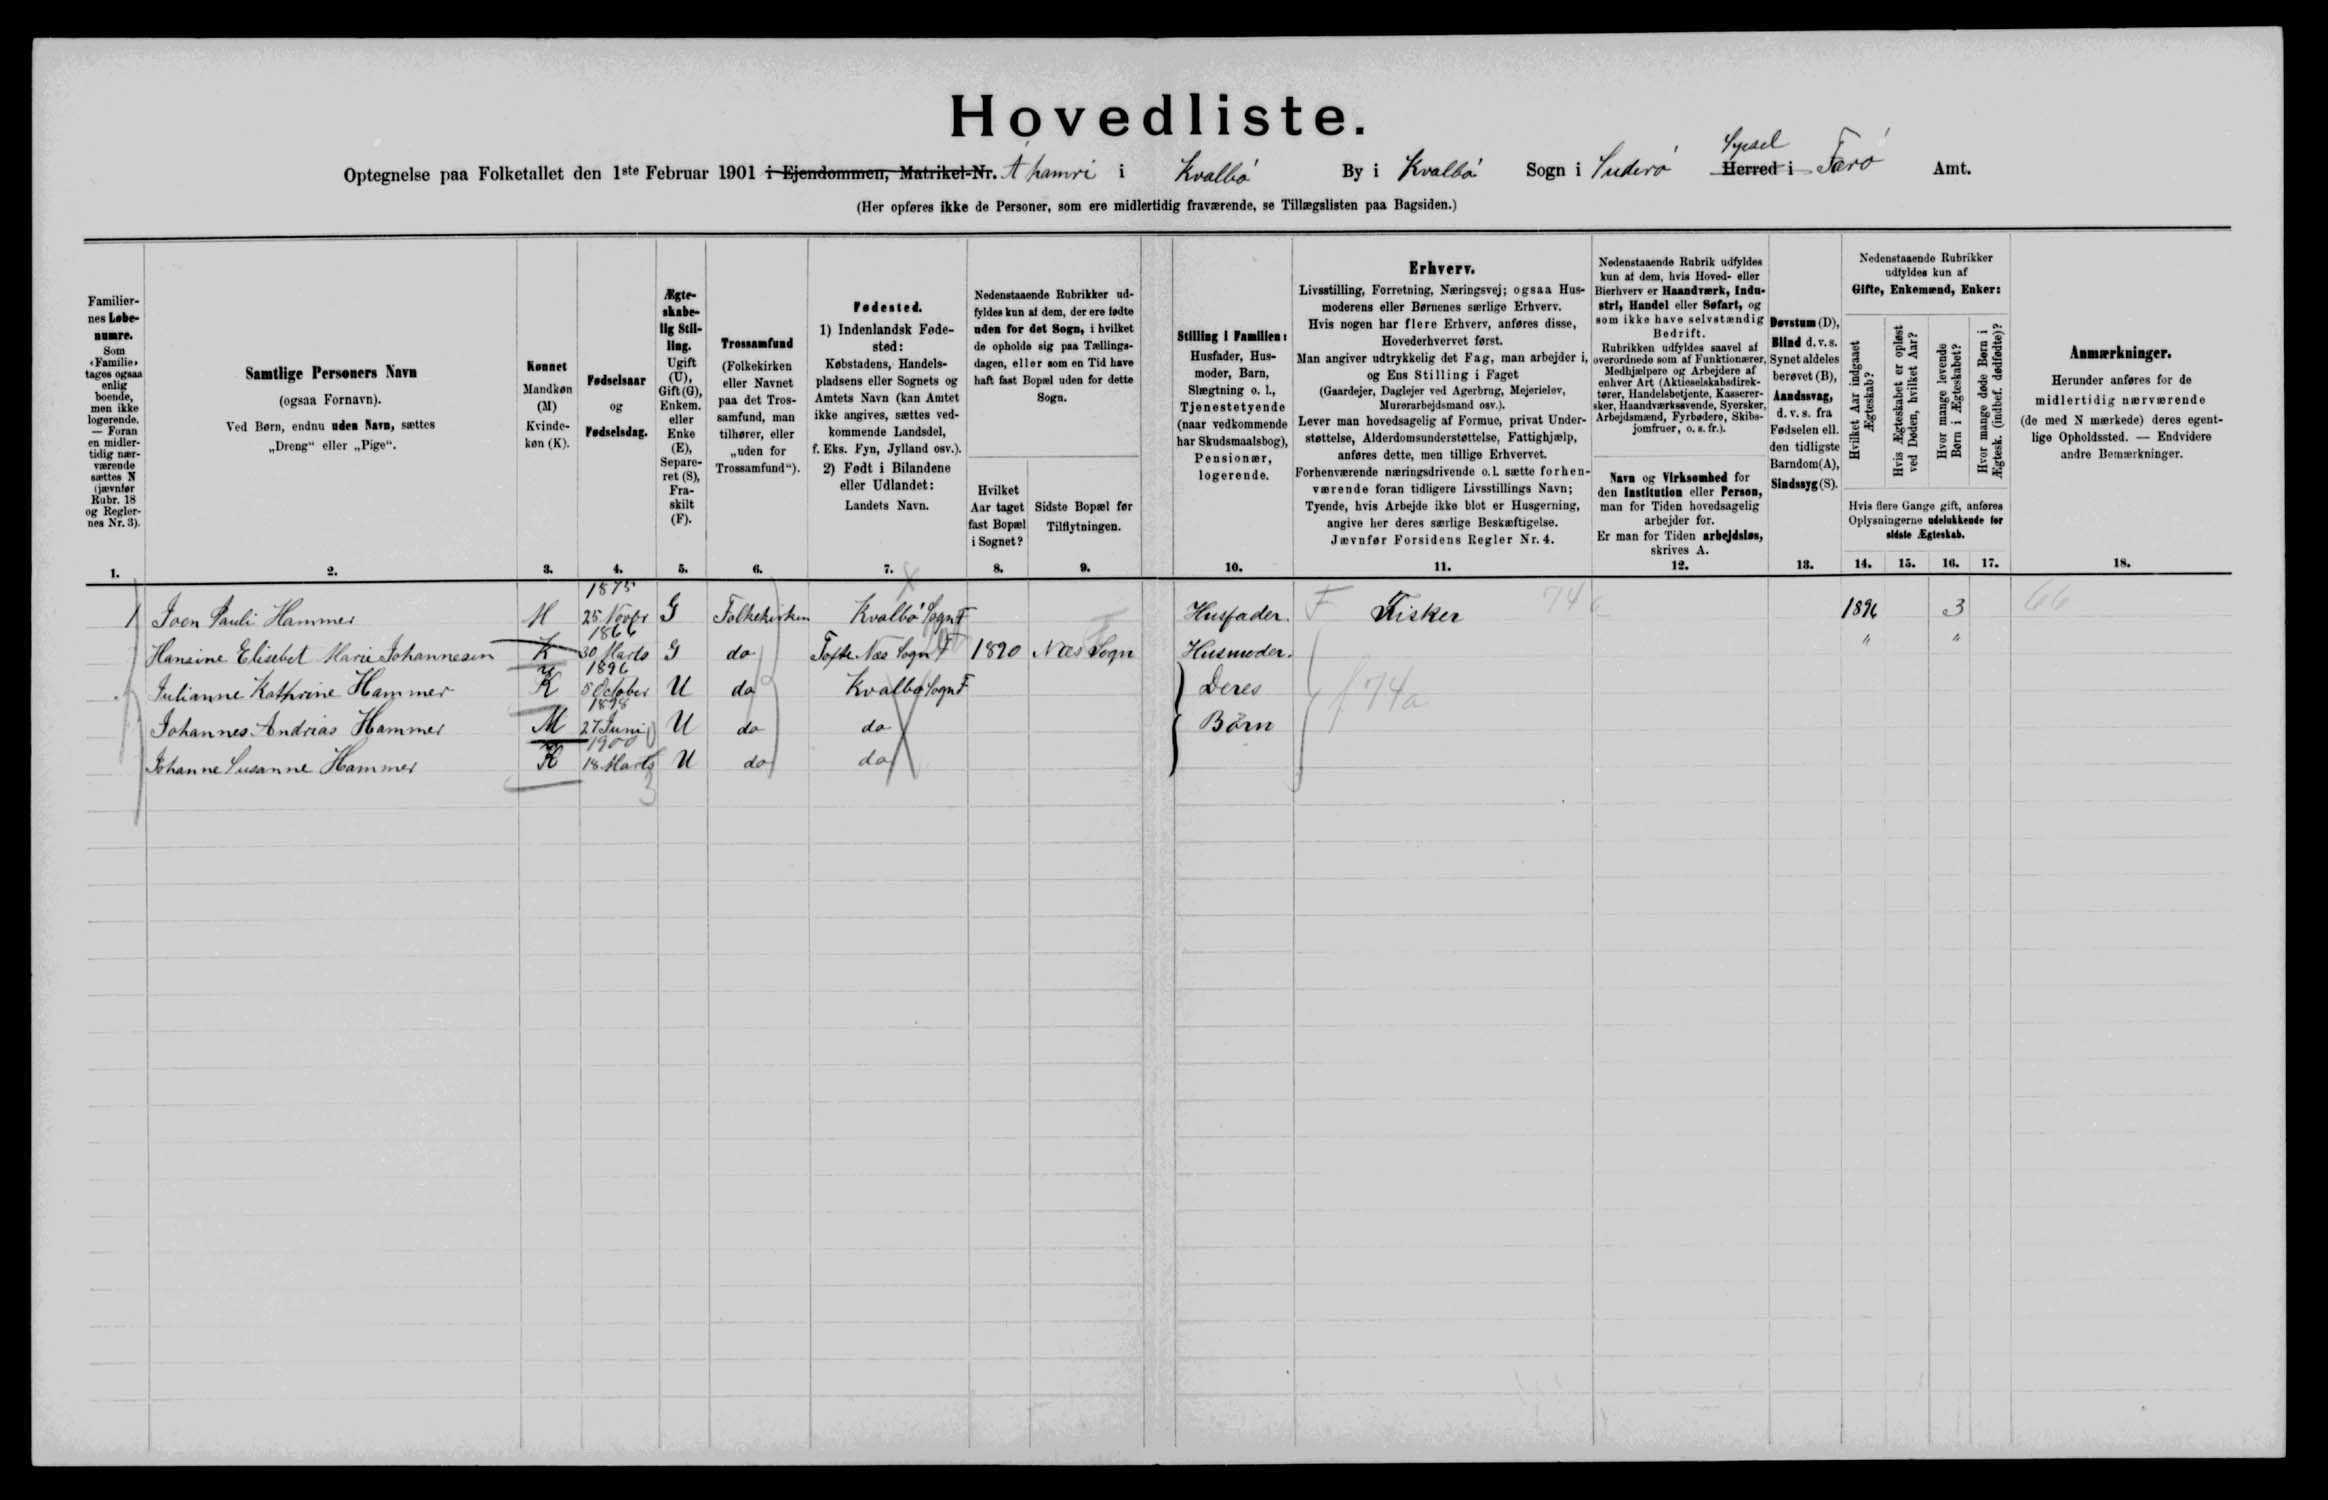 Hovedliste.
Optegnelse paa Folketallet den 1ste Februar 1901 i Ejendommen, Matrikel-Nr. Á hamri i Kvalbö By i Kvalbö Sogn i Suderö Syssel Herred i Færö Amt.
(Her opføres ikke de Personer, som ere midlertidig fraværende, se Tillægslisten paa Bagsiden.)
Familiernes Løbenumre.
Som «Familie» tages ogsaa enlig boende, men ikke logerende. — Foran en midlertidig nærværende sættes N (jævnfør Rubr. 18 og Reglernes Nr. 3).
Samtlige Personers Navn
(ogsaa Fornavn).
Ved Børn, endnu uden Navn, sættes
„Dreng“ eller „Pige“.
Kønnet
Mandkøn (M)
Kvindekøn (K).
Fødselsaar
og
Fødselsdag.
Ægteskabelig Stilling.
Ugift (U), Gift (G), Enkem. eller Enke (E), Separeret (S), Fraskilt (F).
Trossamfund
(Folkekirken eller Navnet paa det Trossamfund, man tilhører, eller „uden for Trossamfund“).
Fødested.
1) Indenlandsk Fødested:
Købstadens, Handelspladsens eller Sognets og Amtets Navn (kan Amtet ikke angives, sættes vedkommende Landsdel, f. Eks. Fyn, Jylland osv.).
2) Født i Bilandene eller Udlandet:
Landets Navn.
Nedenstaaende Rubrikker udfyldes kun af dem, der ere fødte uden for det Sogn, i hvilket de opholde sig paa Tællingsdagen, eller som en Tid have haft fast Bopæl uden for dette Sogn.
Hvilket Aar taget fast Bopæl i Sognet?
Sidste Bopæl før Tilflytningen.
Stilling i Familien:
Husfader, Husmoder, Barn, Slægtning o. l., Tjenestetyende (naar vedkommende har Skudsmaalsbog), Pensionær, logerende.
Erhverv.
Livsstilling, Forretning, Næringsvej; ogsaa Husmoderens eller Børnenes særlige Erhverv.
Hvis nogen har flere Erhverv, anføres disse, Hovederhvervet først.
Man angiver udtrykkelig det Fag, man arbejder i, og Ens Stilling i Faget
(Gaardejer, Daglejer ved Agerbrug, Mejerielev, Murerarbejdsmand osv.).
Lever man hovedsagelig af Formue, privat Understøttelse, Alderdomsunderstøttelse, Fattighjælp, anføres dette, men tillige Erhvervet.
Forhenværende næringsdrivende o.l. sætte forhenværende foran tidligere Livsstillings Navn;
Tyende, hvis Arbejde ikke blot er Husgerning, angive her deres særlige Beskæftigelse.
Jævnfør Forsidens Regler Nr. 4.
Nedenstaaende Rubrik udfyldes kun af dem, hvis Hoved- eller Bierhverv er Haandværk, Industri, Handel eller Søfart, og som ikke have selvstændig Bedrift.
Rubrikken udfyldes saavel af overordnede som af Funktionærer, Medhjælpere og Arbejdere af enhver Art (Aktieselskabsdirektører, Handelsbetjente, Kasserersker, Haandværkssvende, Syersker, Arbejdsmænd, Fyrbødere, Skibsjomfruer, o. s. fr.).
Navn og Virksomhed for den Institution eller Person, man for Tiden hovedsagelig arbejder for.
Er man for Tiden arbejdsløs, skrives A.
Døvstum (D),
Blind d. v. s. Synet aldeles berøvet (B),
Aandssvag, d. v. s. fra Fødselen ell. den tidligste Barndom (A),
Sindssyg (S).
Nedenstaaende Rubrikker udfyldes kun af
Gifte, Enkemænd, Enker:
Hvilket Aar indgaaet Ægteskab?
Hvis Ægteskabet er opløst ved Døden, hvilket Aar?
Hvor mange levende Børn i Ægteskabet?
Hvor mange døde Børn i Ægtesk. (indbef. dødfødte)?
Hvis flere Gange gift, anføres Oplysningerne udelukkende for sidste Ægteskab.
Anmærkninger.
Herunder anføres for de midlertidig nærværende (de med N mærkede) deres egentlige Opholdssted. — Endvidere andre Bemærkninger.
1. 2. 3. 4. 5. 6. 7. 8. 9. 10. 11. 12. 13. 14. 15. 16. 17. 18.
1 Joen Pauli Hammer M 1875 25 Novbr G Folkekirken Kvalbö Sogn F Husfader. F Fisker 74a 1896 3 66
Hansine Elisebet Marie Johannesen K 1866 30 Marts G do Tofte Næs Sogn F 1890 Næs Sogn Husmoder. " "
Julianne Kathrine Hammer K 1896 5 October U do Kvalbö Sogn F Deres f 74a
Johannes Andrias Hammer M 1898 27 Juni U do do Börn
Johanne Susanne Hammer K 1900 18 Marts U do do
3